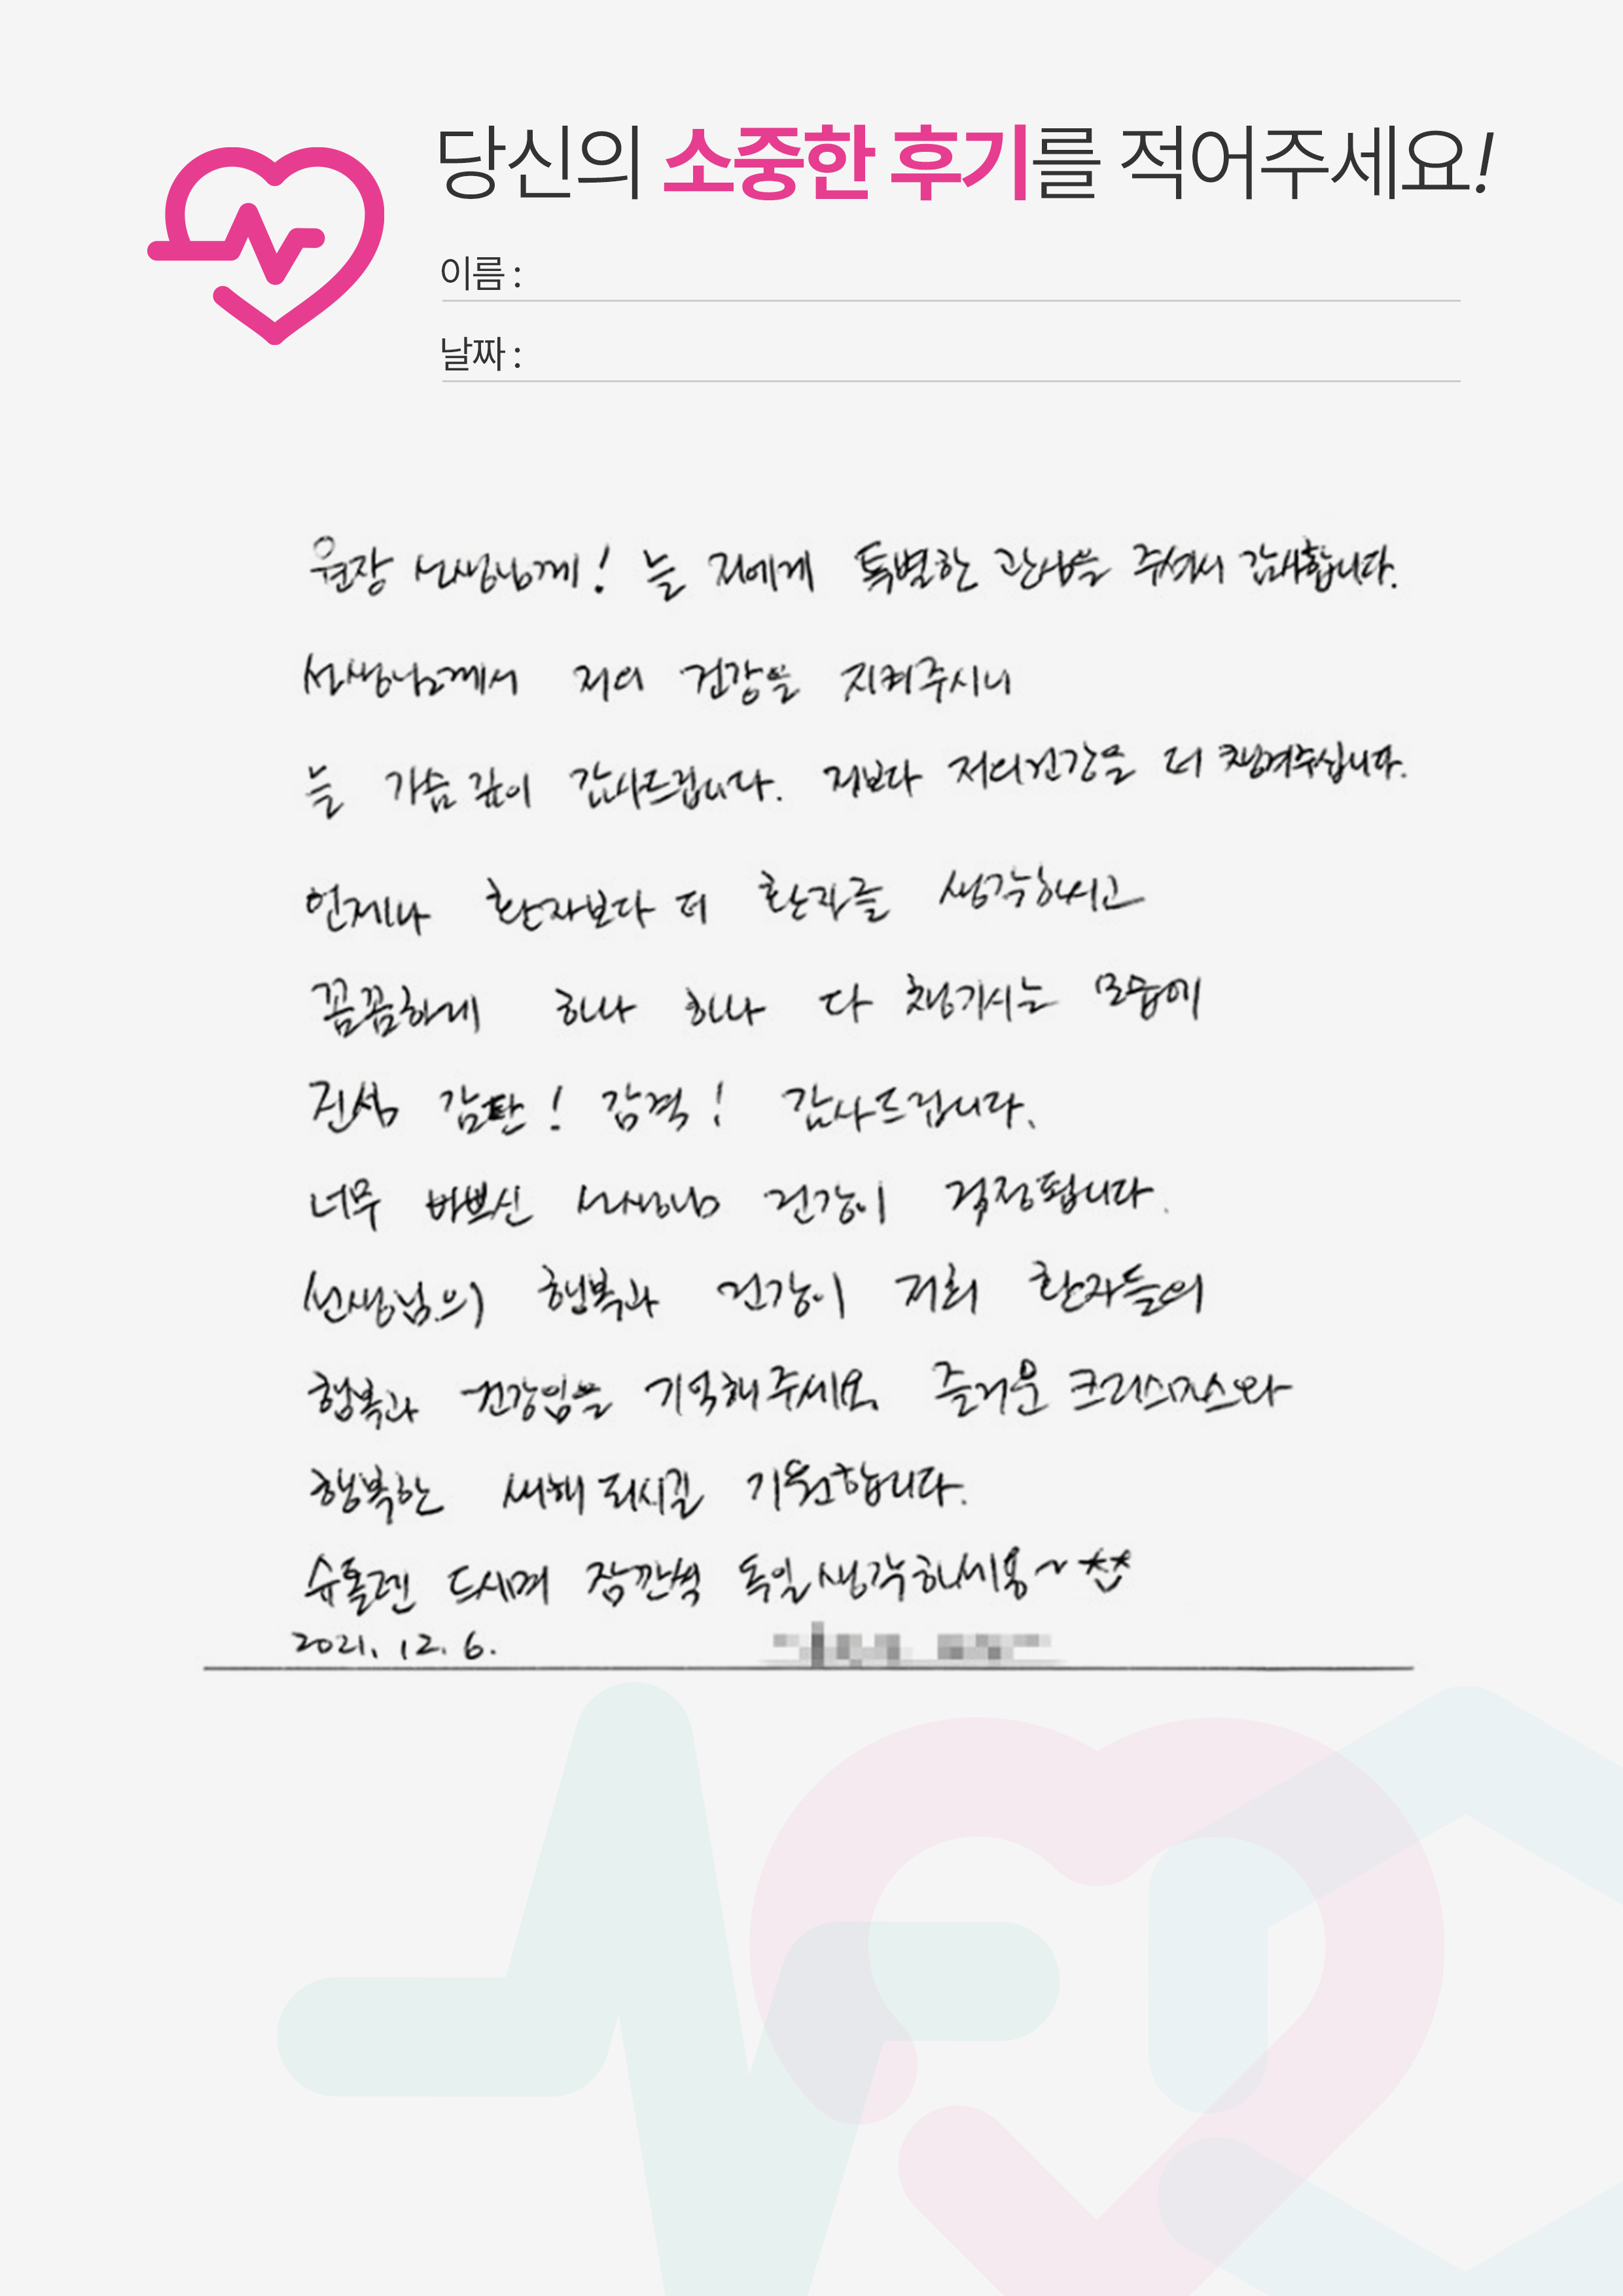 당신의 소중한 후기를 적어주세요!
이름 :
날짜 :
원장 선생님께! 늘 저에게 특별한 관심을 주셔서 감사합니다.
선생님께서 저의 건강을 지켜주시니
늘 가슴 깊이 감사드립니다. 저보다 저의건강을 더 챙겨주십니다.
언제나 환자보다 더 환자를 생각하시고
꼼꼼하게 하나 하나 다 챙기시는 모습에
진심 감탄! 감격! 감사드립니다.
너무 바쁘신 선생님 건강이 걱정됩니다.
선생님의 행복과 건강이 저희 환자들의
행복과 건강임을 기억해주세요. 즐거운 크리스마스와
행복한 새해 되시길 기원합니다.
슈톨렌 드시며 잠깐씩 독일 생각하세용~ ^^
2021. 12. 6.